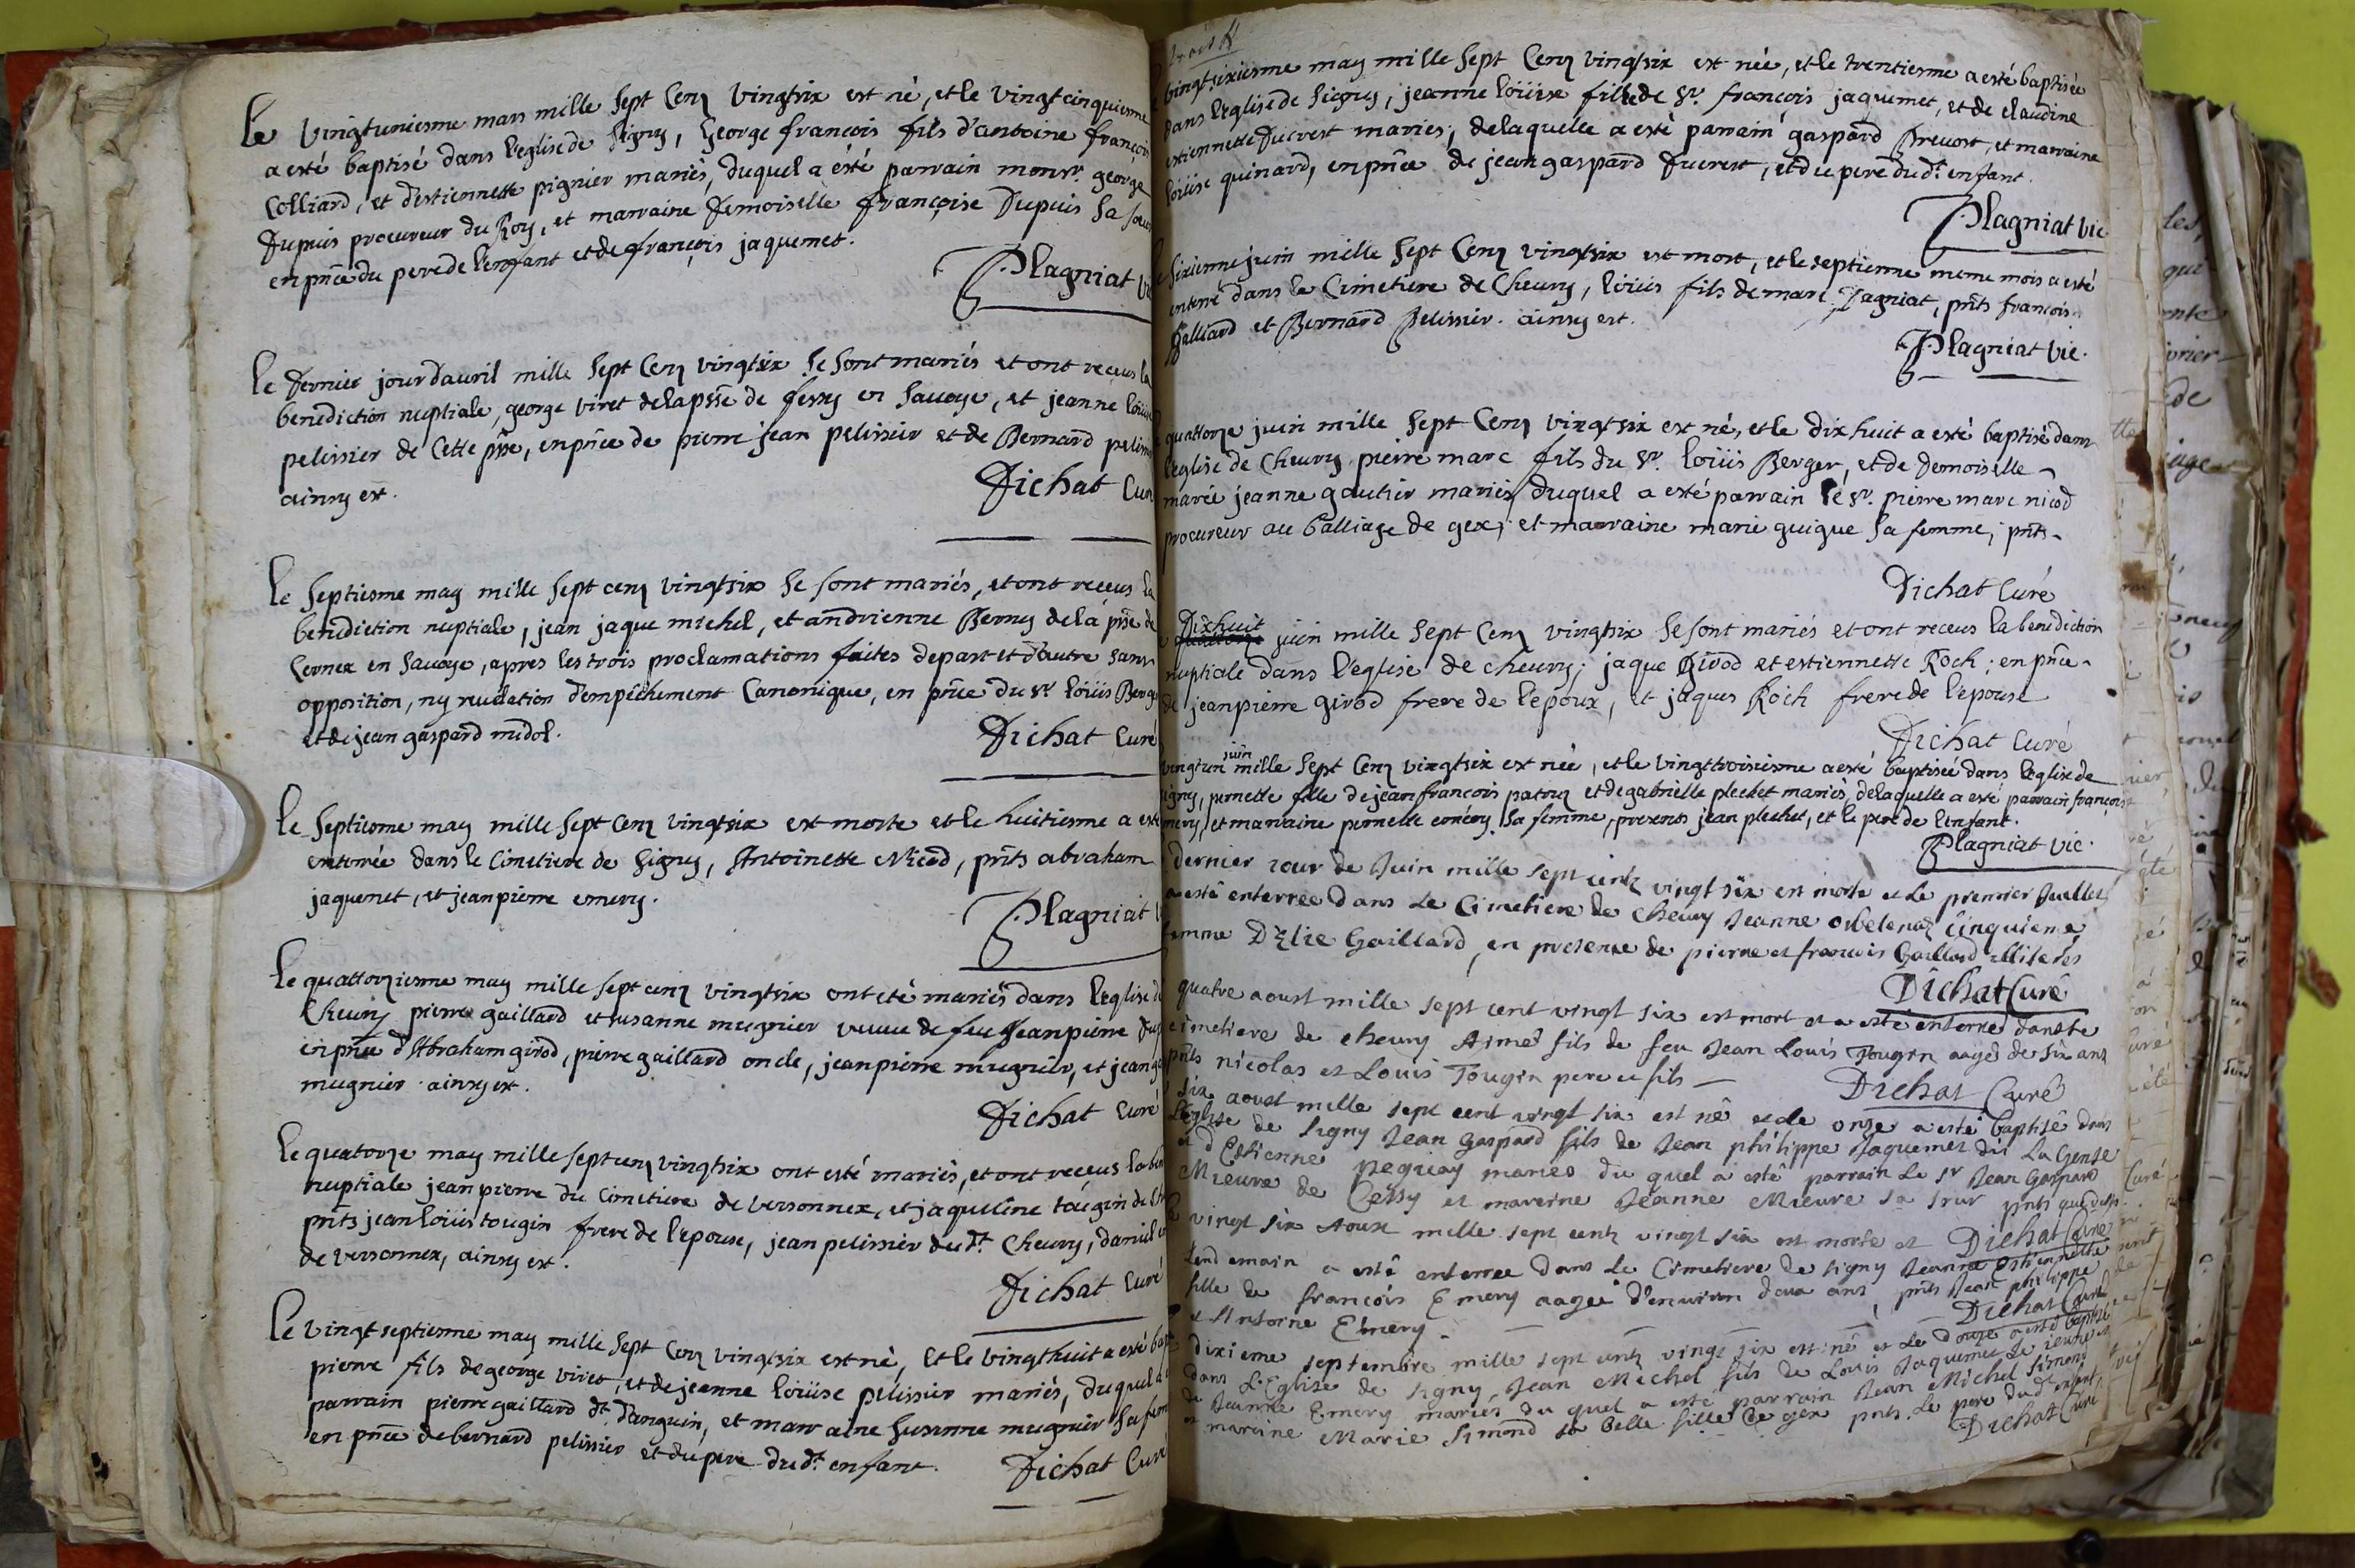 Le vingtuniesme mars mille sept Cenz vingtsix est né, et le vingtcinquiesme
a esté baptisé dans leglise de Signy, George françois fils d'antoine françois
Colliard, et d'estiennette pignier mariés, duquel a été parrain monsr. george
Dupuis procureur du Roy, et marraine Demoiselle françoise Dupuis Sa soeur
en pnce du pere de lenfant et de françois jaquemet.
Plagniat vic
Le dernier jour davril mille sept Cenz vingtsix Se sont mariés et ont receus la
benediction nuptiale, george viret de la psse de fessy en Savoye, et jeanne loüise
pelissier de Cette psse, en pnce de pierre jean pelissier et de Bernard pelissier
ainsy est.
Dichat Curé
Le Septiesme may mille sept cenz vingtsix Se sont mariés, et ont receus la
benediction nuptiale, jean jaque michel, et andrienne Berny de la psse de
Cernex en Savoye, apres les trois proclamations faites de part et d'autre sans
opposition, ny revelation dempêchement Canonique, en pnce du sr loüis Berger
et de jean gaspard nidol.
Dichat Curé
Le Septiesme may mille sept Cenz vingtsix est morte et le huitiesme a esté
enterrée dans le Cimetiere de Signy, Antoinette Nicod, pnts abraham
jaquemet, et jean pierre emery.
Plagniat vic
Le quattorziesme may mille sept cenz vingtsix ont eté mariés dans l'eglise de
Chevry pierre gaillard et susanne mugnier veuve de feu Jean pierre
en pnce d'Abraham girod, pierre gaillard oncle, jean pierre mugnier, et jean
mugnier. ainsy est.
Dichat Curé
Le quatorze may mille sept cenz vingtsix ont esté mariés, et ont receus la ben
nuptiale jean pierre du Cimetiere de versonnex, et jaqueline tougin de
pnts jean loüis tougin frere de l'epouse, jean pelissier dudt. Chevry, daniel
de versonnex, ainsy est.
Dichat Curé
Le vingt septiesme may mille sept Cenz vingtsix est né, et le vingthuit a esté bap
pierre fils de george viret, et de jeanne loüise pelissier mariés, duquel a
parrain pierre gaillard dt. d'anguin, et marraine Susanne mugnier Sa fem
en pnce de bernard pelissier et du pere dudt. enfant.
Dichat Curé
vingtsixiesme may mille sept Cenz vingtsix est née, et le trentiesme a esté baptisée
dans l'eglise de Signy, jeanne loüise fille de Sr. françois jaquemet, et de claudine
estiennette Ducrest mariés, de laquelle a esté parrain gaspard Prevost, et marraine
loüise quinard, en pnce de jean gaspard Ducrest, et du pere dudt. enfant.
Plagniat vic
Sixiesme juin mille Sept Cenz vingtsix est mort, et le septiesme meme mois a esté
enterré dans le Cimetiere de Chevry, loüis fils de marc Zagniat, pnts françois
galliard et Bernard Pelissier. ainsy est.
Plagniat vic.
quattorze juin mille Sept Cenz vingtsix est né, et le dixhuit a esté baptisé dans
l'eglise de Chevry pierre marc fils du Sr. loüis Berger, et de demoiselle
marie jeanne gautier mariés, duquel a esté parrain le Sr. pierre marc nicod
procureur au balliage de gex, et marraine marie guigue Sa femme, pnts.
Dichat Curé
Dixhuit
quattorze juin mille Sept Cenz vingtsix Se sont mariés et ont receus la benediction
nuptiale dans l'eglise de chevry, jaque Girod et estiennette Roch, en pnce
de jean pierre girod frere de l'epoux, et jaques Roch frere de l'epouse
Dichat Curé
juin
vingtun mille Sept Cenz vingtsix est née, et le vingttroisiesme a esté baptisée dans leglise de
signy, pernette fille de jean françois patruz et de gabrielle plechet mariés, de laquelle a esté parrain françois
emery, et marraine pernette Sa femme, presents jean plechet, et le pere de lenfant.
Plagniat vic.
dernier jour de Juin mille sept centz vingt six est morte et Le premier Juillet
a esté enterree dans Le Cimetiere de Chevry Jeanne cinquieme
femme D'Elie Gaillard, en presence de pierre et françois Gaillard illiterés
Dichat Curé
quatre aoust mille sept cent vingt six est mort et a esté enterré dans Le
cimetiere de chevry Aimé fils de feu Jean Louis Tougin aagé de six ans
pnts nicolas et Louis Tougin pere et fils
Dichat Curé
six aoust mille sept cent vingt six est né et le onze a esté baptisé dans
L'Eglise de Signy Jean Gaspard fils de Jean philippe Jaquemet dit La Gense
et d'Estienne pequay maries du quel a esté parrain Le Sr Jean Gaspard
Mieure de Cessy et mareine Jeanne Mieure sa seur pnts que dessus
Dichat Curé
vingt six Aoust mille sept centz vingt six est morte et
Lendemain a esté enterree dans Le Cimetiere de Signy Jeanne Estiennette
fille de françois Emery aagée d'environ deux ans, pnts Jean philippe
et Antoine Emery.
Dichat Curé
dixieme septembre mille sept centz vingt six est né et Le douze a esté baptisé
dans L'Eglise de Signy, Jean Michel fils de Louis Jaquemet Le jeune et
de Jeanne Emery maries du quel a esté parrain Jean Michel Simond
et mareine Marie Simond sa Belle fille de gex pnts. Le pere dudt enfant
Dichat Curé